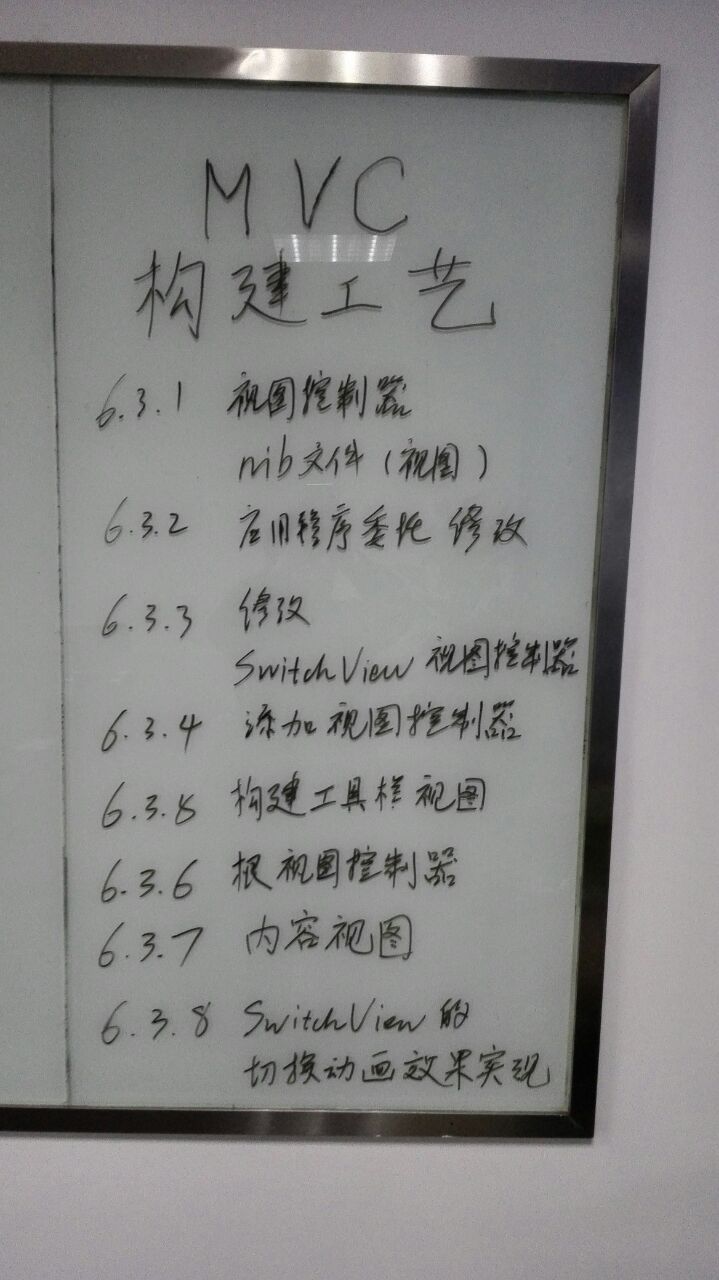 MVC
构建工艺
6.3.1 视图控制器
nib文件(视图)
6.3.2 应用程序委托 修改
6.3.3 修改
SwitchView 视图控制器
6.3.4 添加视图控制器
6.3.8 构建工具栏视图
6.3.6 根视图控制器
6.3.7 内容视图
6.3.8 SwitchView 的
切换动画效果实现